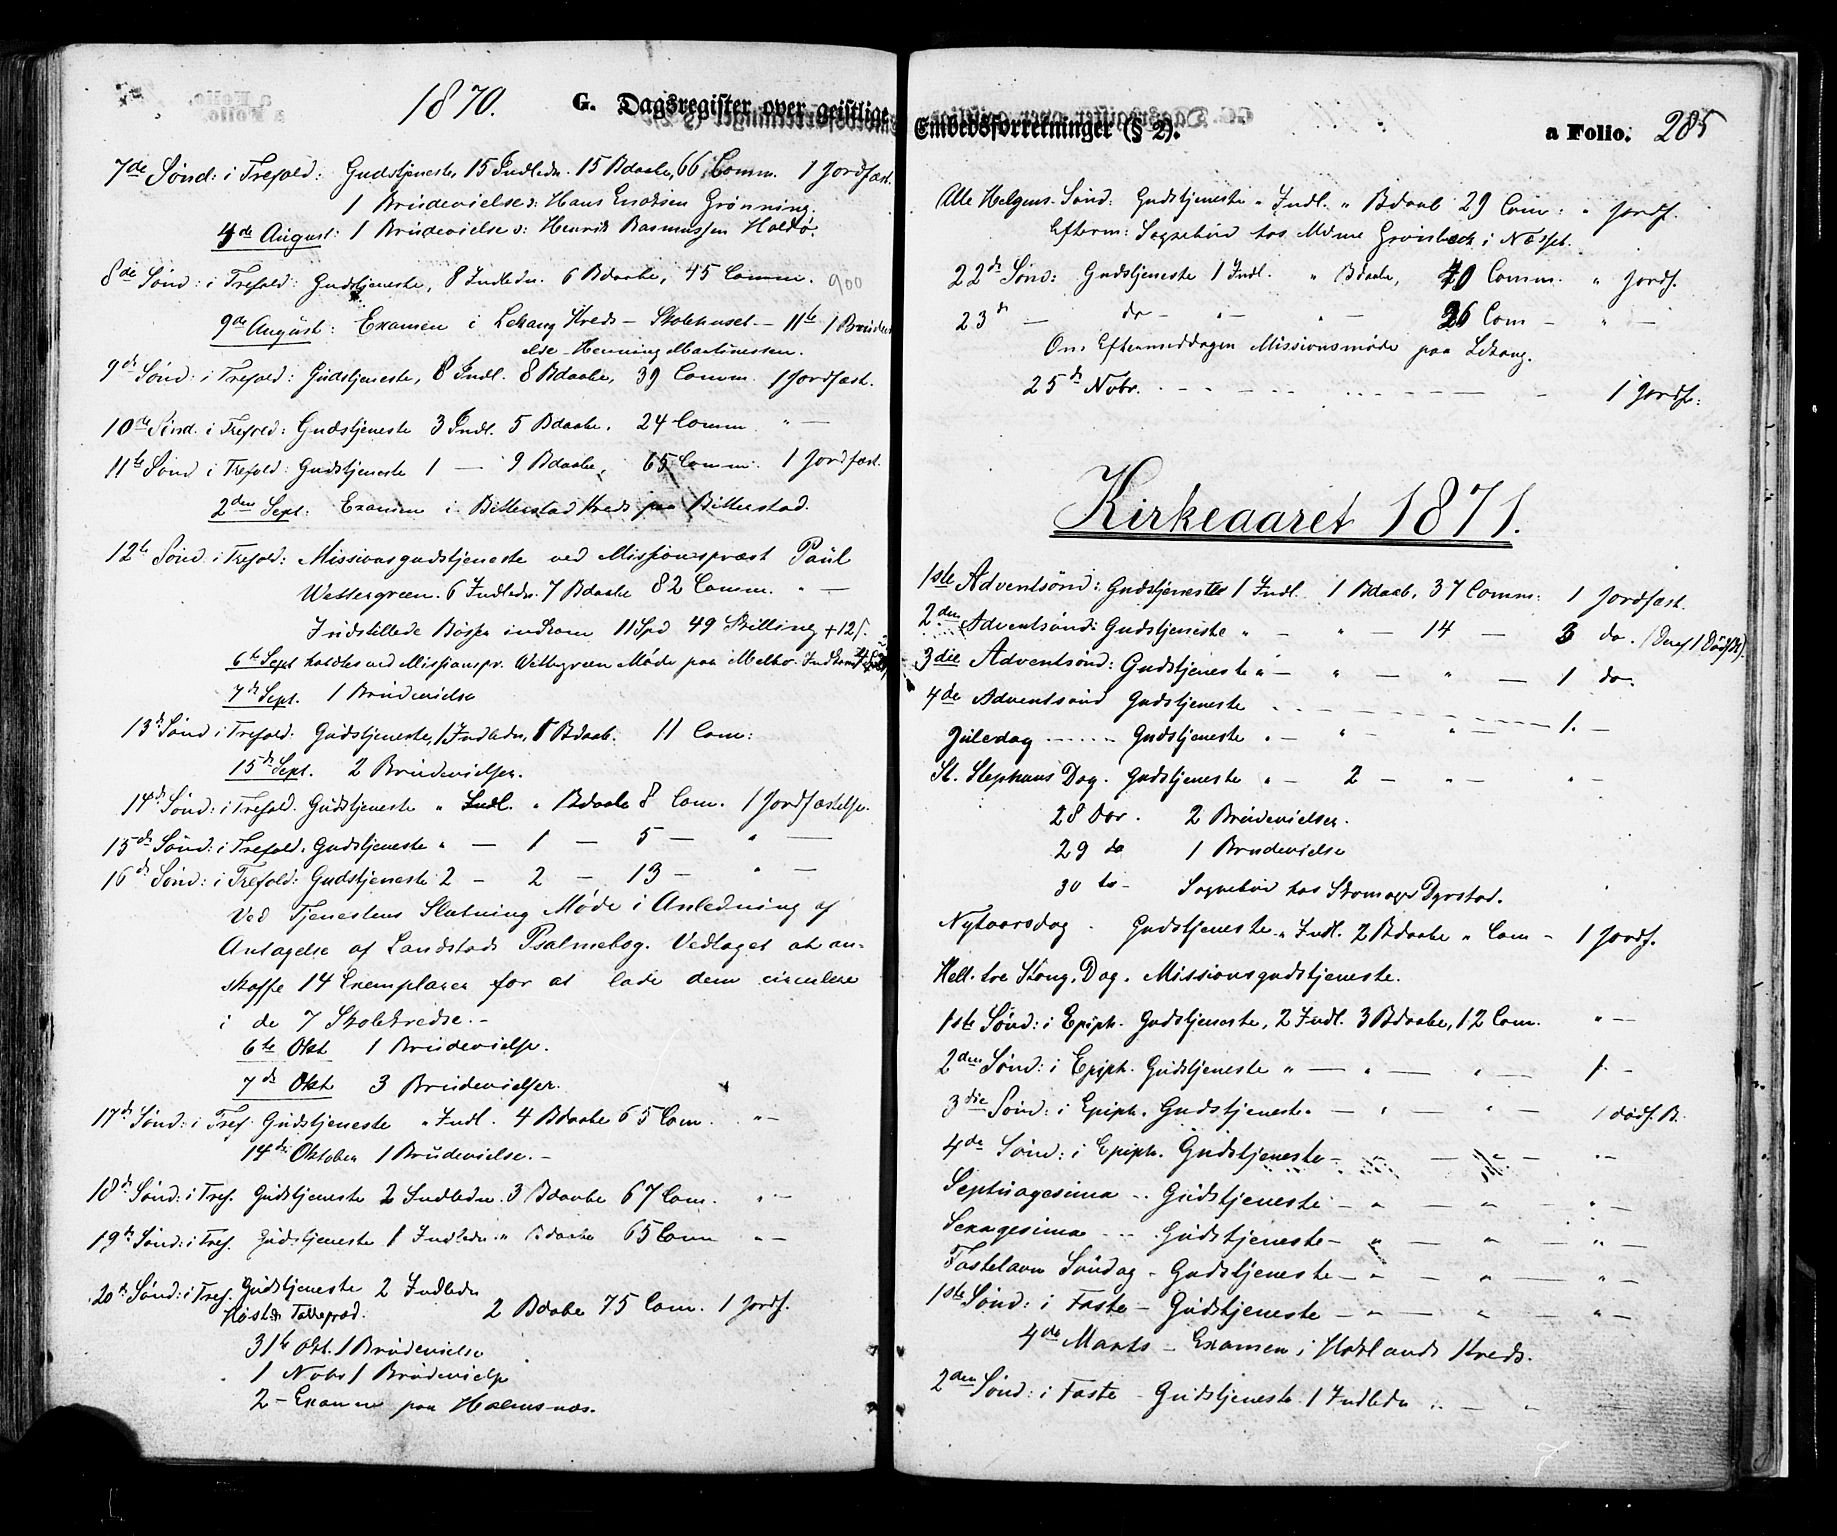 1870. G. Dagsregister over geistlige
7de Sønd: i Trefold: Gudstjeneste, 15 Indledn. 15 Bdaabe, 66 Comm. 1 Jordfæst.
1 Brudevielse: Hans Enoksen Grønning.
4de August: 1 Brudevielse: Henrik Rasmussen Holdø.
8de Sønd: i Trefold: Gudstjeneste, 8 Indledn. 6 Bdaabe, 45 Comm. 900
9de August: Examen i Lekang Kreds - Skolehuset. - 11te 1 Brudevi
else Henning Martinussen.
9de Sønd: i Trefold: Gudstjeneste, 8 Indl. 8 Bdaabe, 39 Comm. 1 Jordfæst.
10de Sønd. i Trefold: Gudstjeneste 3 Indl. 5 Bdaabe. 24 Comm. " —
11te Sønd i Trefold: Gudstjeneste 1 — 9 Bdaabe, 65 Comm. 1 Jordfæst.
2den Sept: Examen i Bitterstad Kreds paa Bitterstad.
12te Sønd. i Trefold: Missionsgudstjeneste ved Missionspræst Paul
Wettergreen. 6 Indledn. 7 Bdaabe 82 Comm. " —
Indstillede Bøsser indkom 11 Spd 49 Skilling + 12
6te Sept holdtes ved Missionspr. Wettegreen Møde paa Melbo. Indkom
7de Sept. 1 Brudevielse
13de Sønd i Trefold: Gudstjeneste, 1 Indledn, 1 Bdaab. 11 Com:
15de Sept. 2 Brudevielser.
14de Sønd: i Trefold. Gudstjeneste " Indl. " Bdaabe 8 Com. 1 Jordfæstelse.
15de Sønd: i Trefold. Gudstjeneste " — 1 — 5 — " —
16de Sønd: i Trefold: Gudstjeneste 2 — 2 — 13 — " —
Ved Tjenestens Slutning Møde i Anledning af
Antagelse af Landstads Psalmebog. Vedtaget at an-
skaffe 14 Exemplarer for at lade dem circulere
i de 7 Skolekredse. -
6te Okt 1 Brudevielse.
7de Okt 3 Brudevielser.
17de Sønd: i Tref. Gudstjeneste " Indl. 4 Bdaabe 65 Com. " —
14de Oktober 1 Brudevielse. -
18de Sønd: i Tref. Gudstjeneste 2 Indledn. 3 Bdaabe 67 Com. " —
19de Sønd: i Tref. Gudstjeneste 1 Indledn " Bdaabe 65 Com " —
20de Sønd: i Tref. Gudstjeneste 2 Indledn
Høst Takkepræd. 2 Bdaabe 75 Com. 1 Jordf.
31te Okt. 1 Brudevielse
1 Nobr 1 Brudevielse
2 - Examen paa Holmsnæs.
Embedsforretninger (§ 2). a Folio. 285
Alle Helgens. Sønd: Gudstjeneste " Indl. " Bdaab 29 Com: " Jordf.
Efterm: Sognebud hos Mdme Grønbeck i Næsset.
22de Sønd: Gudstjeneste 1 Indl. " Bdaabe, 40 Comm. " Jordf.
23de — do — " — " — 26 Com — " —
Om Eftermiddagen Missionsmøde paa Lekang.
25de Nobr. — 1 Jordf:
Kirkeaaret 1871.
1ste Adventsønd: Gudstjeneste 1 Indl. 1 Bdaab. 37 Comm: 1 Jordfæst.
2den Adventsønd: Gudstjeneste " — " — 14 — 3 do. (Deraf 1 Dødf.)
3die Adventsønd: Gudstjeneste " — " — " — 1 do.
4de Adventsønd Gudstjeneste — 1. —
Juledag ...... Gudstjeneste " — " — " — 1. —
St. Stephans Dag. Gudstjeneste " — 2 — " — " —
28 Dcr. 2 Brudevielser.
29 do 1 Brudevielse
30 to - Sognebud hos Skomager Dyrstad.
Nytaarsdag. Gudstjeneste " Indl. 2 Bdaabe " Com — 1 Jordf.
Hell. tre Kong. Dag. Missionsgudstjeneste.
1ste Sønd: i Epiph. Gudstjeneste, 2 Indl. 3 Bdaabe, 12 Com. " —
2den Sønd: i Epiph. Gudstjeneste " — " — " — 1 —
3die Sønd: i Epiph. Gudstjeneste " — " — " — 1 dødf. B.
4de Sønd: i Epiph. Gudstjeneste — " — " — " —
Septuagesima — Gudstjeneste — " — " — " —
Sexagesima — Gudstjeneste — " — " — " —
Fastelavn Søndag - Gudstjeneste — " — " — " —
1ste Sønd: i Faste - Gudstjeneste — " — " — " —
4de Marts - Examen i Haklands Kreds.
2den Sønd: i Faste - Gudstjeneste 1 Indledn " — " —